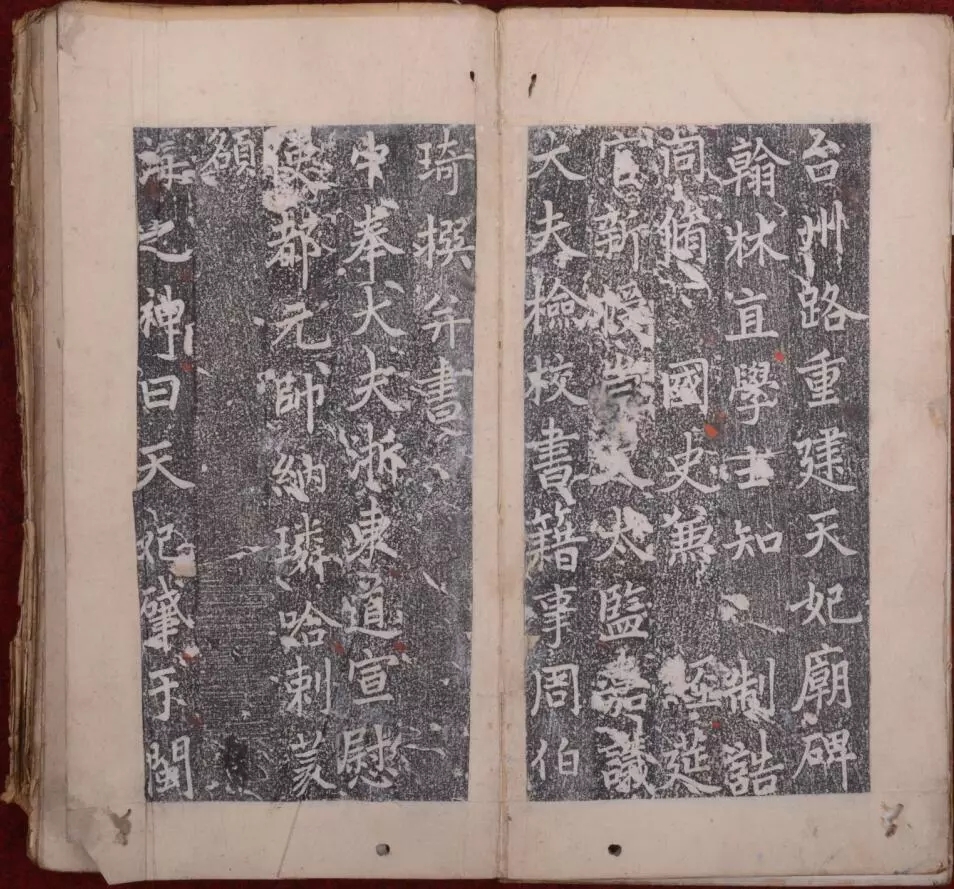 台州路重建天妃廟碑
翰林直學士知 制誥
同脩 國史兼 經筵
官新授崇文太監嘉議
大夫檢校書籍事周伯
琦撰并書
中奉大夫浙東道宣慰
使都元帥納璘哈剌篆
額
海之神曰天妃肇于閩